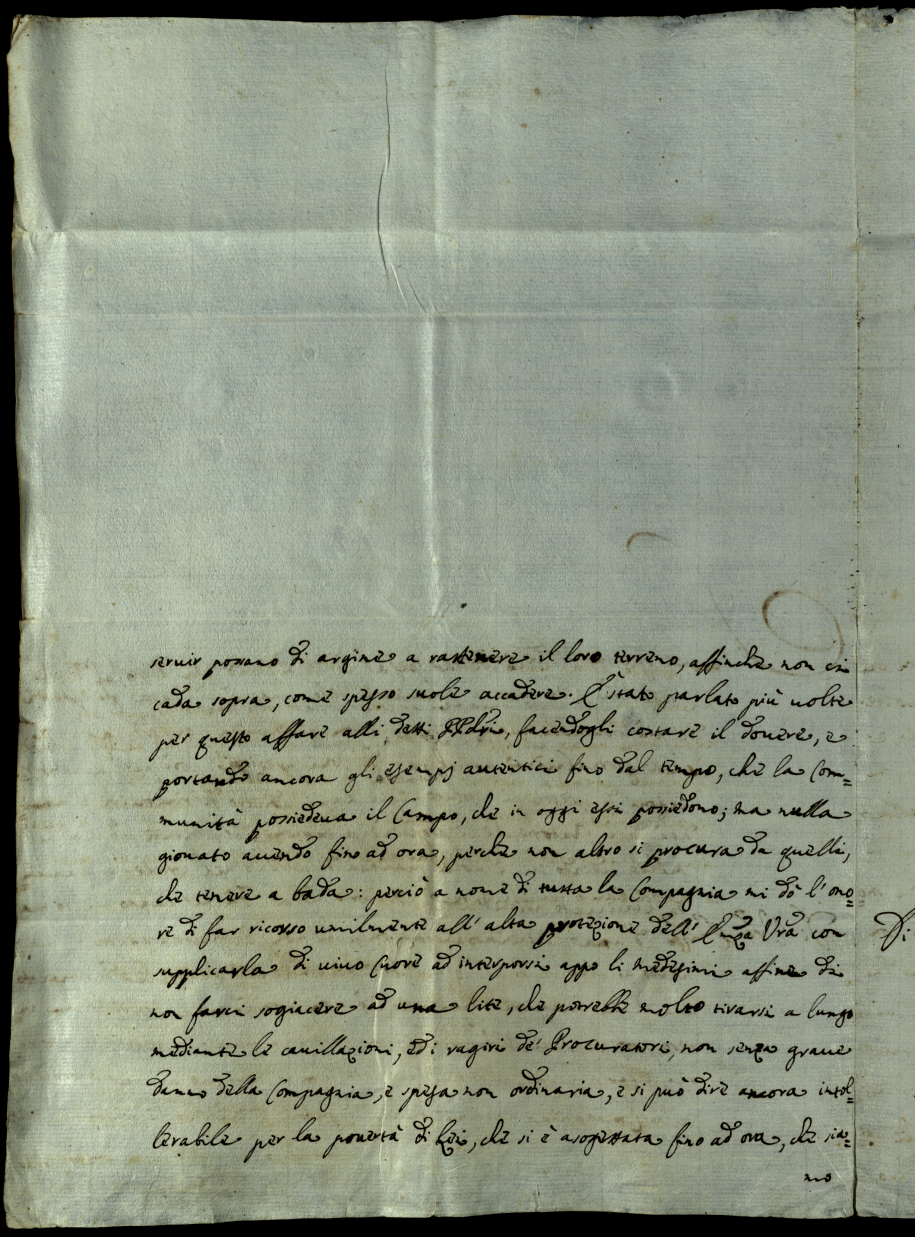 seruir possano di argine a rattenere il loro terreno, affinche non ci
cada sopra, come spesso suole accadere. E' stato parlato più uolte
per questo affare alli detti PPdri, facendogli costare il douere, e
portando ancora gli esempj autentici fino dal tempo, che la Com=
munità possiedeua il Campo, che in oggi essi possiedono; ma nulla
giouato auendo fino ad ora, perche non altro si procura da quelli,
che tenere a bada: perciò a nome di tutta la Compagnia mi dò l'ono=
re di far ricorso umilmente all' alta protezione dell' Emza Vra con
supplicarla di uiuo Cuore ad interporsi appo li medesimi affine di
non farci sogiacere ad una lite, che potrebbe molto tirarsi a lungo
mediante le cauillazioni, ed i ragiri de' Procuratori, non senza graue
danno della Compagnia, e spesa non ordinaria, e si può dire ancora intol=
lerabile per la pouertà di Lei, che si è asogettata fino ad ora, che sia=
mo
Di